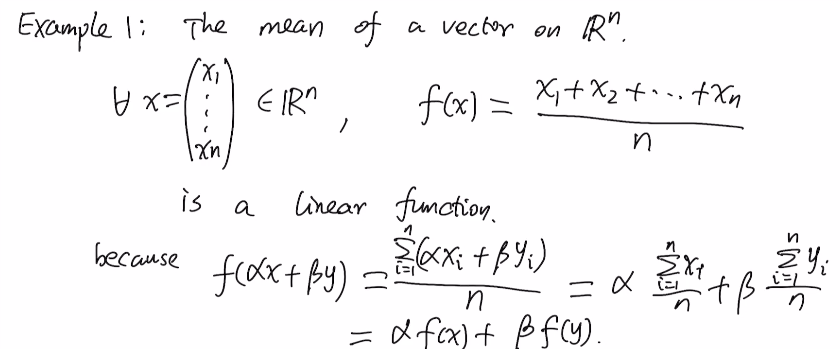 Example 1: The mean of a vector on ℝⁿ.
∀ x = (x₁ ⋮ xₙ) ∈ ℝⁿ, f(x) = (x₁ + x₂ + ⋯ + xₙ) / n
is a linear function.
because f(αx + βy) = (∑ᵢ₌₁ⁿ (αxᵢ + βyᵢ)) / n = α (∑ᵢ₌₁ⁿ xᵢ) / n + β (∑ᵢ₌₁ⁿ yᵢ) / n
= αf(x) + βf(y).